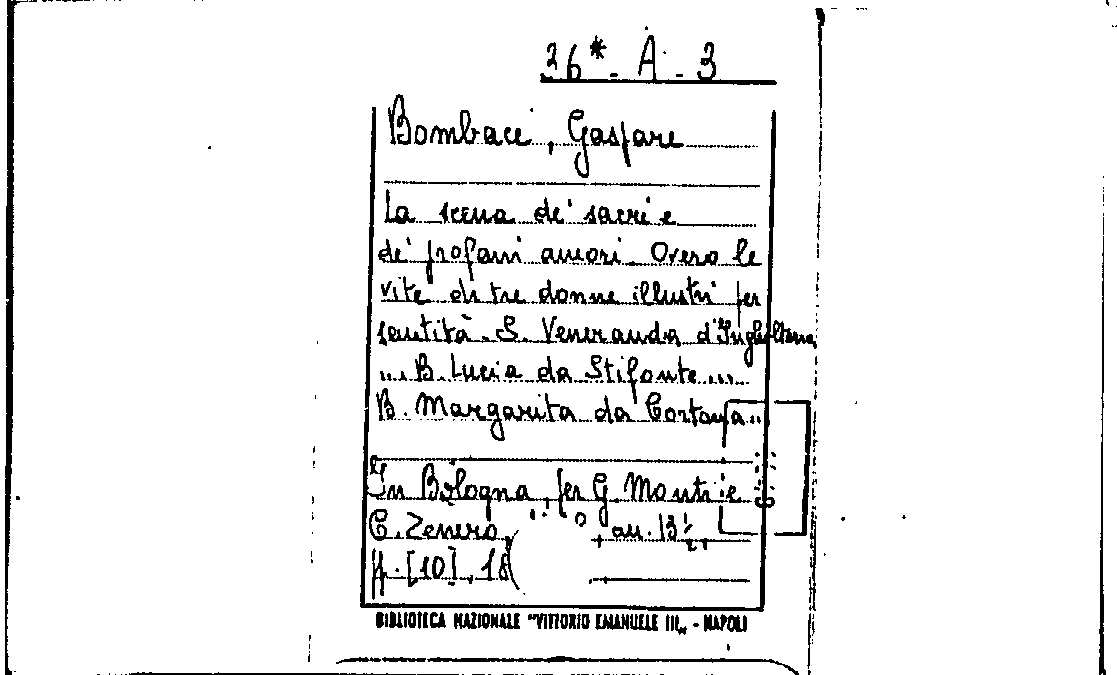 36* - A - 3
Bombaci, Gaspare
La scena de' sacri e
de' profani amori. Overo le
vite di tre donne illustri per
santità. S. Veneranda d'Inghilterra
... B. Lucia da Stifonte ...
B. Margarita da Cortona ..
In Bologna, per G. Monti e
C. Zenero,
pp. [10],
BIBLIOTECA NAZIONALE "VITTORIO EMANUELE III„ - NAPOLI